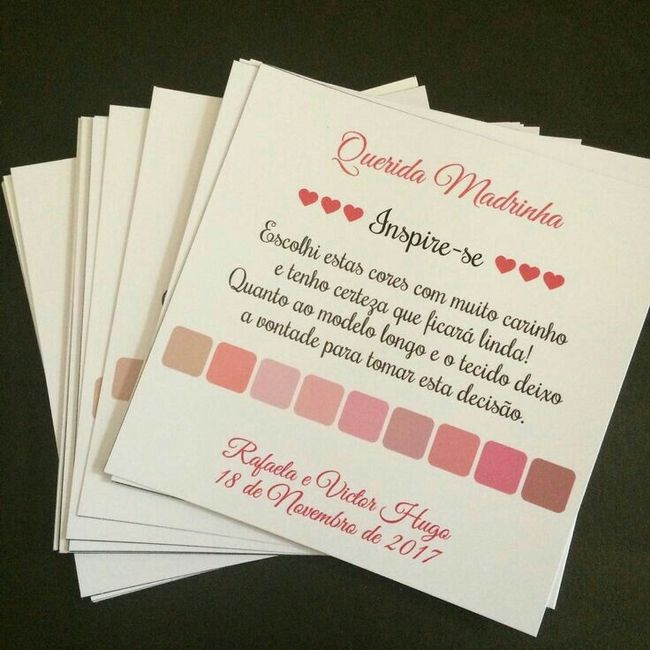 Querida Madrinha
Inspire-se
Escolhi estas cores com muito carinho
e tenho certeza que ficará linda!
Quanto ao modelo longo e o tecido deixo
a vontade para tomar esta decisão.
Rafaela e Victor Hugo
18 de Novembro de 2017